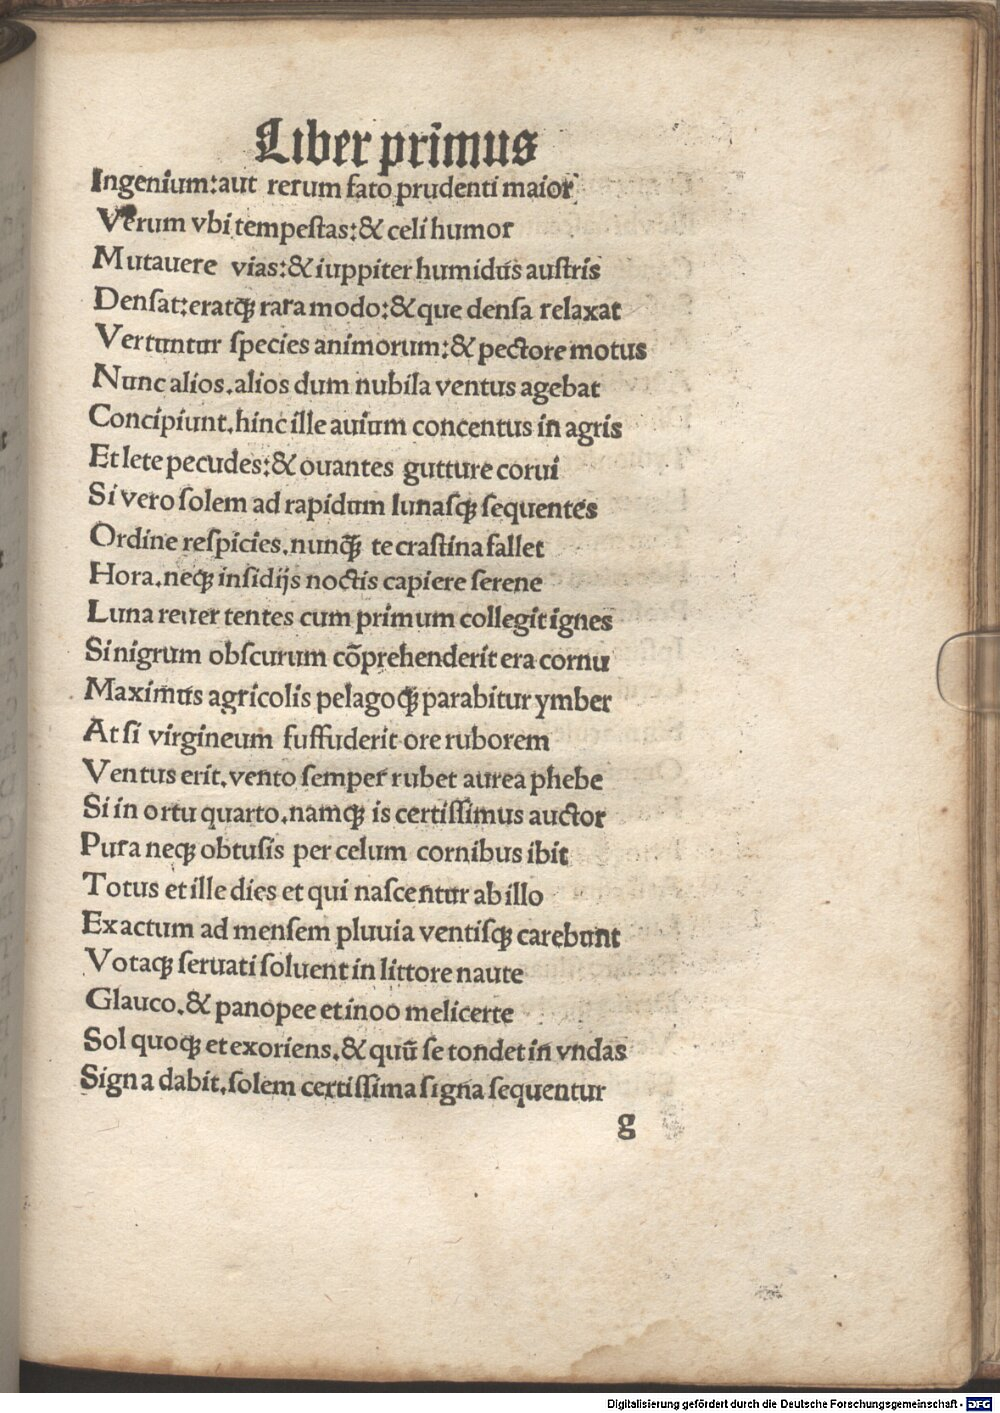 Liber primus
Ingenium:aut rerum fato prudenti maior
Verum vbi tempeſtas:& celi humor
Mutauere vias:& iuppiter humidus auſtris
Denſat:eratqȝ rara modo:& que denſa relaxat
Vertuntur ſpecies animorum:& pectore motus
Nunc alios.alios dum nubila ventus agebat
Concipiunt.hinc ille auium concentus in agris
Et lete pecudes:& ouantes gutture corui
Si vero ſolem ad rapidum lunaſqȝ ſequentes
Ordine reſpicies.nunqȝ̃ te craſtina fallet
Hora.neqȝ inſidijs noctis capiere ſerene
Luna reuertentes cum primum collegit ignes
Si nigrum obſcurum cõprehenderit era cornu
Maximus agricolis pelagoqȝ parabitur ymber
At ſi virgineum ſuffuderit ore ruborem
Ventus erit.vento ſemper rubet aurea phebe
Si in ortu quarto.namqȝ is certiſſimus auctor
Pura neqȝ obtuſis per celum cornibus ibit
Totus et ille dies et qui naſcentur ab illo
Exactum ad menſem pluuia ventiſqȝ carebunt
Votaqȝ ſeruati ſoluent in littore naute
Glauco.& panopee et inoo melicerte
Sol quoqȝ et exoriens.& quũ ſe tondet in vndas
Signa dabit.ſolem certiſſima ſigna ſequentur
g
Digitalisierung gefördert durch die Deutsche Forschungsgemeinschaft - DFG